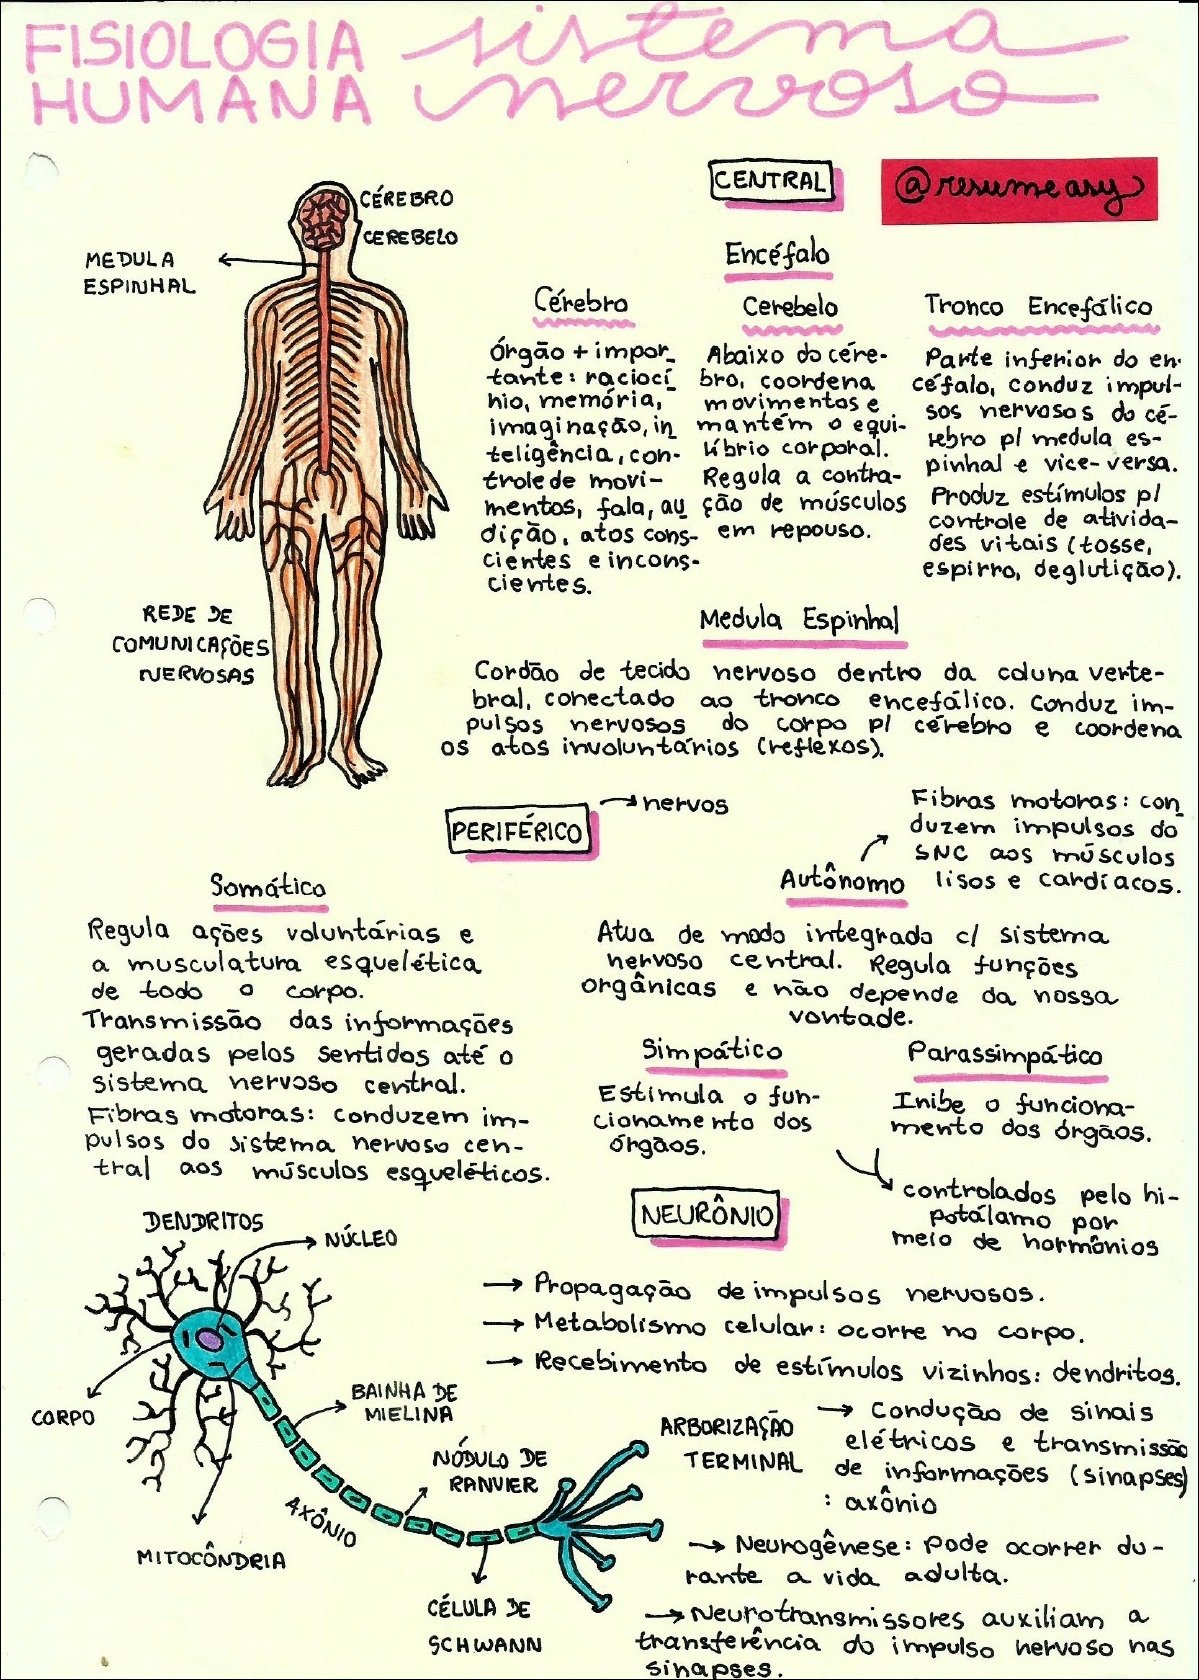 FISIOLOGIA sistema
HUMANA nervoso
CENTRAL
@resumeasy
CÉREBRO
CEREBELO
MEDULA
ESPINHAL
REDE DE
COMUNICAÇÕES
NERVOSAS
Encéfalo
Cérebro
órgão + impor_
tante: raciocí_
nio, memória,
imaginação, in_
teligência, con-
trole de movi-
mentos, fala, au_
dição, atos cons-
cientes e incons-
cientes.
Cerebelo
Abaixo do cére-
bro, coordena
movimentos e
mantém o equi-
líbrio corporal.
Regula a contra-
ção de músculos
em repouso.
Tronco Encefálico
Parte inferior do en-
céfalo, conduz impul-
sos nervosos do cé-
rebro p/ medula es-
pinhal e vice-versa.
Produz estímulos p/
controle de ativida-
des vitais (tosse,
espirro, deglutição).
Medula Espinhal
Cordão de tecido nervoso dentro da coluna verte-
bral, conectado ao tronco encefálico. Conduz im-
pulsos nervosos do corpo p/ cérebro e coordena
os atos involuntários (reflexos).
PERIFÉRICO → nervos
Somático
Regula ações voluntárias e
a musculatura esquelética
de todo o corpo.
Transmissão das informações
geradas pelos sentidos até o
sistema nervoso central.
Fibras motoras: conduzem im-
pulsos do sistema nervoso cen-
tral aos músculos esqueléticos.
Autônomo
Fibras motoras: con_
duzem impulsos do
SNC aos músculos
lisos e cardíacos.
Atua de modo integrado c/ sistema
nervoso central. Regula funções
orgânicas e não depende da nossa
vontade.
Simpático
Estimula o fun-
cionamento dos
órgãos.
Parassimpático
Inibe o funciona-
mento dos órgãos.
controlados pelo hi-
potálamo por
meio de hormônios
NEURÔNIO
→ Propagação de impulsos nervosos.
→ Metabolismo celular: ocorre no corpo.
→ Recebimento de estímulos vizinhos: dendritos.
→ Condução de sinais
elétricos e transmissão
de informações (sinapses)
: axônio
→ Neurogênese: Pode ocorrer du-
rante a vida adulta.
→ Neurotransmissores auxiliam a
transferência do impulso nervoso nas
sinapses.
DENDRITOS
NÚCLEO
CORPO
BAINHA DE
MIELINA
NÓDULO DE
RANVIER
AXÔNIO
MITOCÔNDRIA
CÉLULA DE
SCHWANN
ARBORIZAÇÃO
TERMINAL